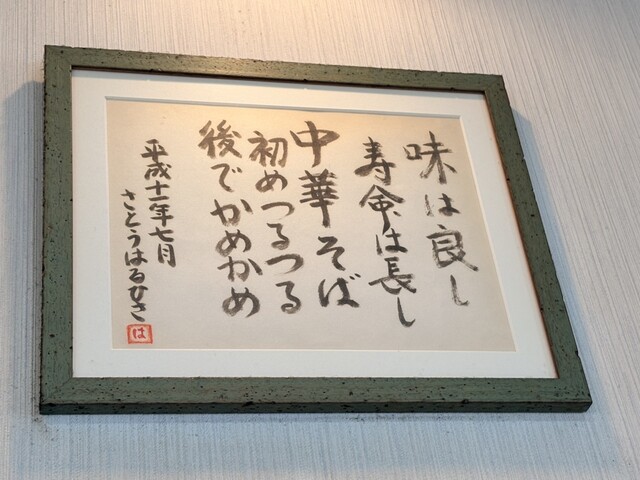 味は良し
寿命は長し
中華そば
初めつるつる
後でかめかめ
平成十一年七月
さとうはるひさ
は